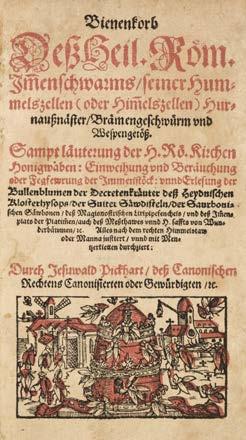 Bienenkorb
Deß Heil. Röm.
Im̃enschwarms / seiner Hum-
melszellen (oder Him̃elszellen) Hur-
naußnäster / Brämengeschwürm vnd
Wespengetöß.
Sampt läuterung der H. Rö. Kirchen
Honigwaben: Einweihung vnd Beräuchung
oder Fegfewrung der Immenstöck: vnnd Erlesung der
Bullenblumen der Decretenkräuter / deß Heydnischen
Klosterhysops / der Suiter Säwdisteln / der Saurboni-
schen Säwbonen / deß Magisnostrischen Liripipefenchels / vnd deß Im̃en-
plats der Plattimen / auch deß Meßthawes vnnd H. saffts von Wun-
derbäumen / ꝛc. Alles nach dem rechten Himmelstaw
oder Manna justiert / vnnd mit Men-
tzerkletten durchziert:
Durch Jesuwald Pickhart / deß Canonischen
Rechtens Canonisierten oder Gewürdigten / ꝛc.